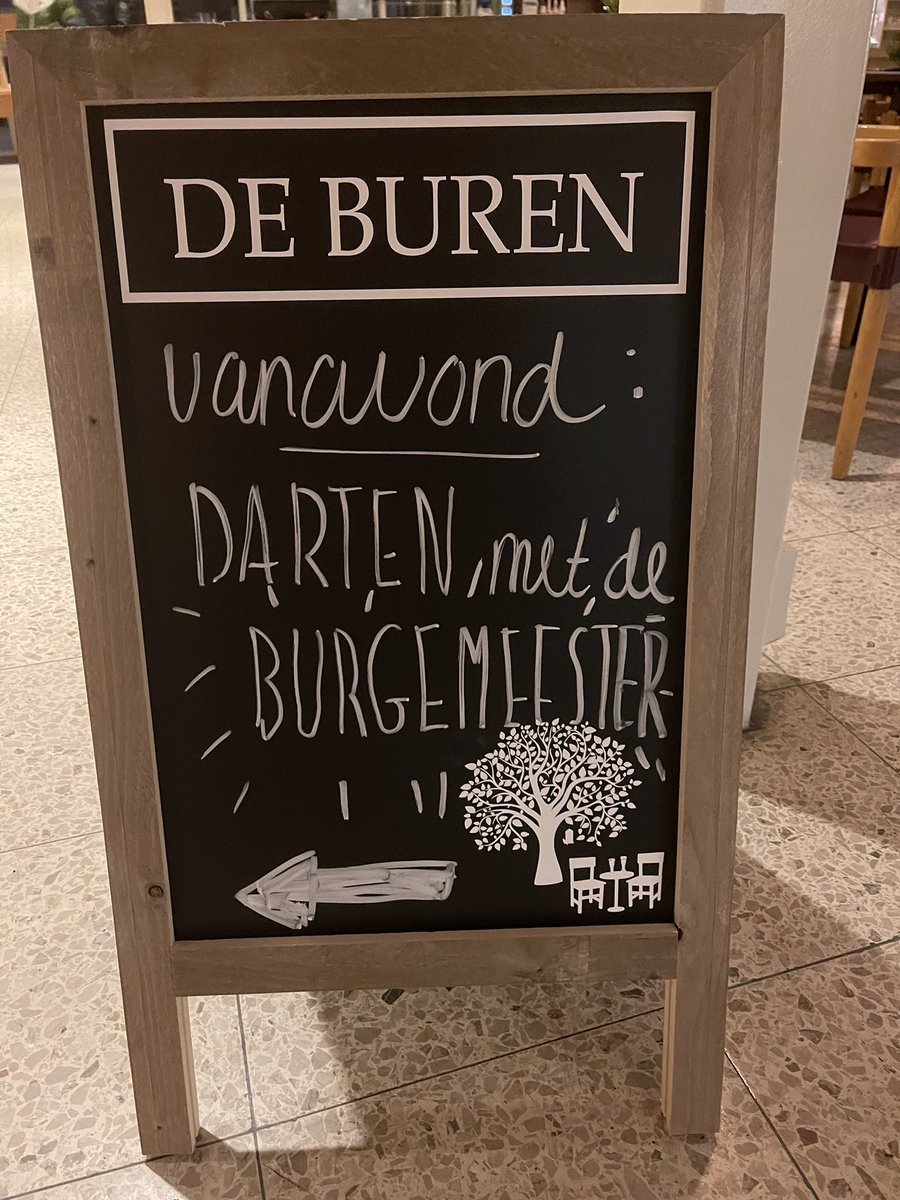 DE BUREN
vanavond:
DARTEN met de
BURGEMEESTER